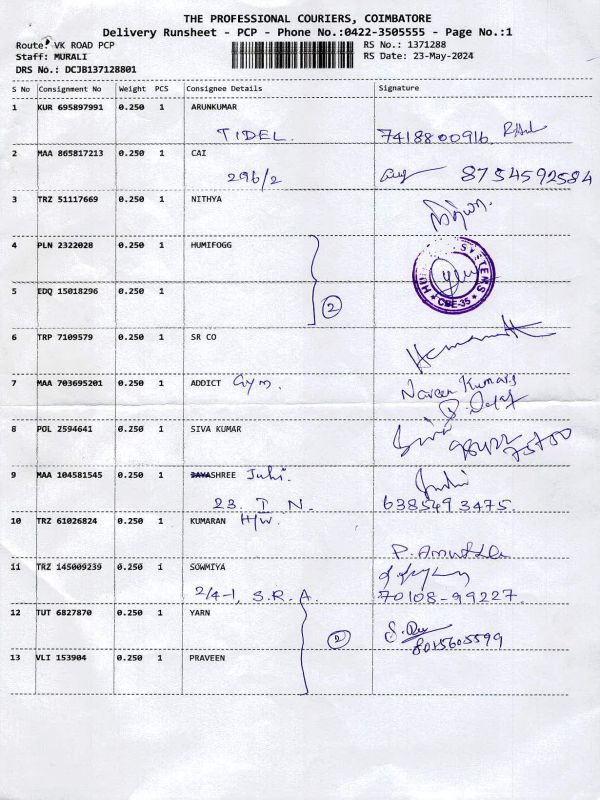 THE PROFESSIONAL COURIERS, COIMBATORE
Delivery Runsheet - PCP - Phone No.:0422-3505555 - Page No.:1
Route: VK ROAD PCP
RS No.: 1371288
Staff: MURALI
RS Date: 23-May-2024
DRS No.: DCJB137128801
S No Consignment No Weight PCS Consignee Details Signature
1 KUR 695897991 0.250 1 ARUNKUMAR
TIDEL. 7418800916
2 MAA 865817213 0.250 1 CAI
296/2 8754592584
3 TRZ 51117669 0.250 1 NITHYA
4 PLN 2322028 0.250 1 HUMIFOGG
5 EDQ 15018296 0.250 1
2
SYSTEMS
CBE-35
6 TRP 7109579 0.250 1 SR CO
7 MAA 703695201 0.250 1 ADDICT Gym. Naveen Kumar
8 POL 2594641 0.250 1 SIVA KUMAR Siva
9 MAA 104581545 0.250 1 JAYASHREE Juhi.
23. I N. 6385493475.
10 TRZ 61026824 0.250 1 KUMARAN H/W.
P. Amutha
11 TRZ 145009239 0.250 1 SOWMIYA
2/4-1, S.R.A. 70108-99227.
12 TUT 6827870 0.250 1 YARN
2 8015605599
13 VLI 153904 0.250 1 PRAVEEN